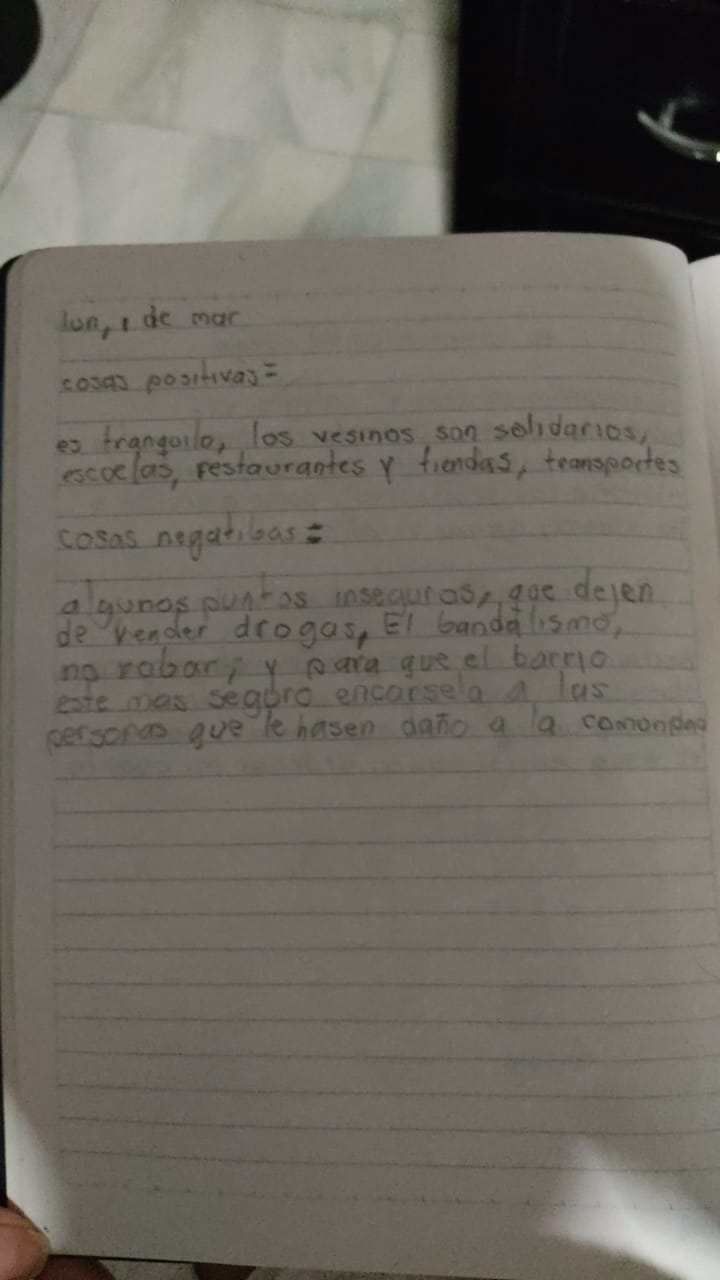 lun, 1 de mar
cosas positivas=
es tranquilo, los vesinos son solidarios,
escuelas, restaurantes y tiendas, transportes
cosas negatibas=
algunos puntos inseguros, que dejen
de vender drogas, El bandalismo,
no robar, y para que el barrio
este mas seguro encorsela a las
personas que le hasen daño a la